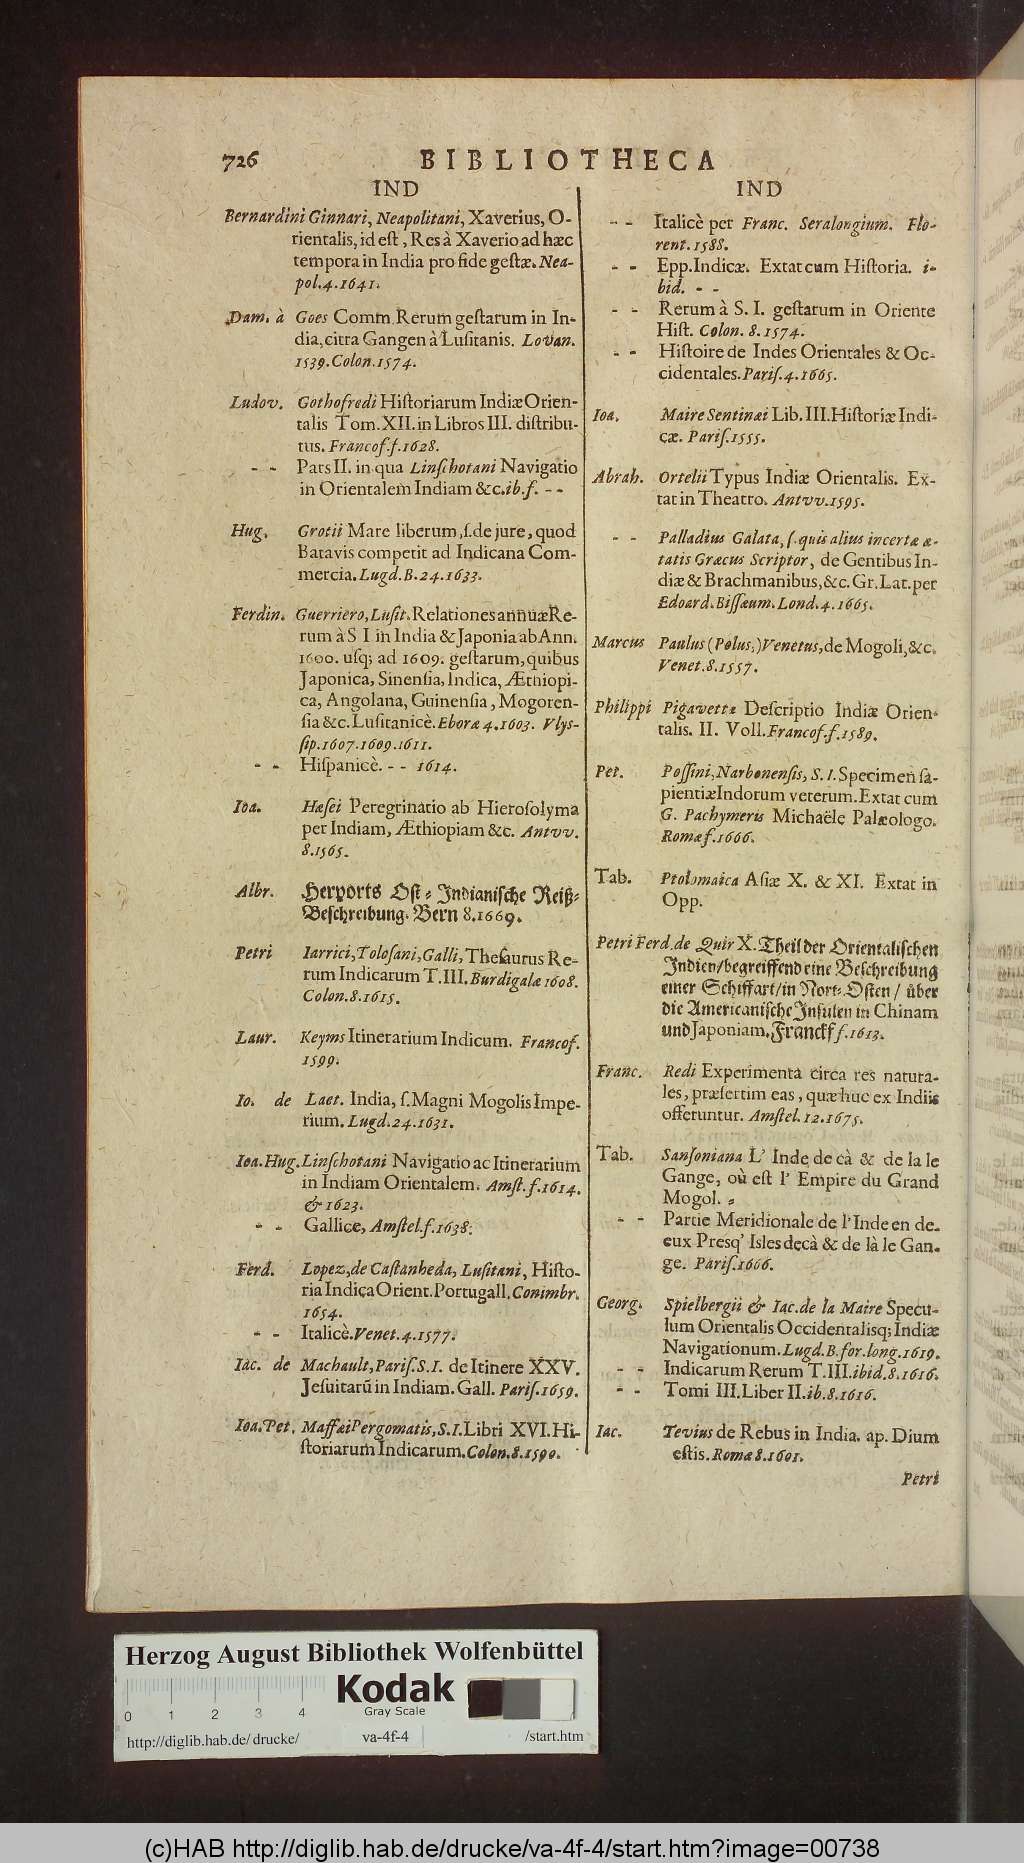 726
BIBLIOTHECA
IND
Bernardini Ginnari, Neapolitani, Xaverius, O-
rientalis, id est, Res à Xaverio ad hæc
tempora in India pro fide gestæ. Nea-
pol. 4. 1641.
Dam. à Goes Comm. Rerum gestarum in In-
dia, citra Gangen à Lusitanis. Lovan.
1539. Colon. 1574.
Ludov. Gothofredi Historiarum Indiæ Orien-
talis Tom. XII. in Libros III. distribu-
tus. Francof. f. 1628.
- - Pars II. in qua Linschotani Navigatio
in Orientalem Indiam &c. ib. f. - -
Hug. Grotii Mare liberum, s. de jure, quod
Batavis competit ad Indicana Com-
mercia. Lugd. B. 24. 1633.
Ferdin. Guerriero, Lusit. Relationes annuæ Re-
rum à S I in India & Japonia ab Ann.
1600. usq; ad 1609. gestarum, quibus
Japonica, Sinensia, Indica, Æthiopi-
ca, Angolana, Guinensia, Mogoren-
sia &c. Lusitanicè. Eboræ 4. 1603. Vlys-
sip. 1607. 1609. 1611.
- - Hispanicè. - - 1614.
Ioa. Hæsei Peregrinatio ab Hierosolyma
per Indiam, Æthiopiam &c. Antvv.
8. 1565.
Albr. Herports Ost-Indianische Reiß-
Beschreibung. Bern 8. 1669.
Petri Iarrici, Tolosani, Galli, Thesaurus Re-
rum Indicarum T. III. Burdigalæ 1608.
Colon. 8. 1615.
Laur. Keyms Itinerarium Indicum. Francof.
1599.
Io. de Laet. India, s. Magni Mogolis Impe-
rium. Lugd. 24. 1631.
Ioa. Hug. Linschotani Navigatio ac Itinerarium
in Indiam Orientalem. Amst. f. 1614.
& 1623.
- - Gallice, Amstel. f. 1638.
Ferd. Lopez, de Castanheda, Lusitani, Histo-
ria Indica Orient. Portugall. Conimbr.
1654.
- - Italicè. Venet. 4. 1577.
Iac. de Machault, Paris. S. I. de Itinere XXV.
Jesuitarū in Indiam. Gall. Paris. 1659.
Ioa. Pet. Maffæi Pergomatis, S. I. Libri XVI. Hi-
storiarum Indicarum. Colon. 8. 1590.
IND
- - Italicè per Franc. Seralongium. Flo-
rent. 1588.
- - Epp. Indicæ. Extat cum Historia. i-
bid. - -
- - Rerum à S. I. gestarum in Oriente
Hist. Colon. 8. 1574.
- - Histoire de Indes Orientales & Oc-
cidentales. Paris. 4. 1665.
Ioa. Maire Sentinai Lib. III. Historiæ Indi-
cæ. Paris. 1555.
Abrah. Ortelii Typus Indiæ Orientalis. Ex-
tat in Theatro. Antvv. 1595.
- - Palladius Galata, s. quis alius incertæ æ-
tatis Græcus Scriptor, de Gentibus In-
diæ & Brachmanibus, &c. Gr. Lat. per
Edoard. Bissæum. Lond. 4. 1665.
Marcus Paulus (Polus,) Venetus, de Mogoli, &c.
Venet. 8. 1557.
Philippi Pigavettæ Descriptio Indiæ Orien-
talis. II. Voll. Francof. f. 1589.
Pet. Possini, Narbonensis, S. I. Specimen sa-
pientiæ Indorum veterum. Extat cum
G. Pachymeris Michaële Palæologo.
Romæ f. 1666.
Tab. Ptolomaica Asiæ X. & XI. Extat in
Opp.
Petri Ferd. de Quir X. Theil der Orientalischen
Indien/ begreiffend eine Beschreibung
einer Schiffart/ in Nort-Osten/ über
die Americanische Insulen in Chinam
und Japoniam. Franckf f. 1613.
Franc. Redi Experimenta circa res natura-
les, præsertim eas, quæ huc ex Indiis
offeruntur. Amstel. 12. 1675.
Tab. Sansoniana L' Inde de cà & de la le
Gange, où est l' Empire du Grand
Mogol. -
- - Partie Meridionale de l' Inde en de-
eux Presq' Isles decà & de là le Gan-
ge. Paris. 1666.
Georg. Spielbergii & Iac. de la Maire Specu-
lum Orientalis Occidentalisq; Indiæ
Navigationum. Lugd. B. for. long. 1619.
- - Indicarum Rerum T. III. ibid. 8. 1616.
- - Tomi III. Liber II. ib. 8. 1616.
Iac. Tevius de Rebus in India. ap. Dium
estis. Romæ 8. 1601.
Petri
Herzog August Bibliothek Wolfenbüttel
0 1 2 3 4
Kodak
Gray Scale
http://diglib.hab.de/drucke/ va-4f-4 /start.htm
(c)HAB http://diglib.hab.de/drucke/va-4f-4/start.htm?image=00738